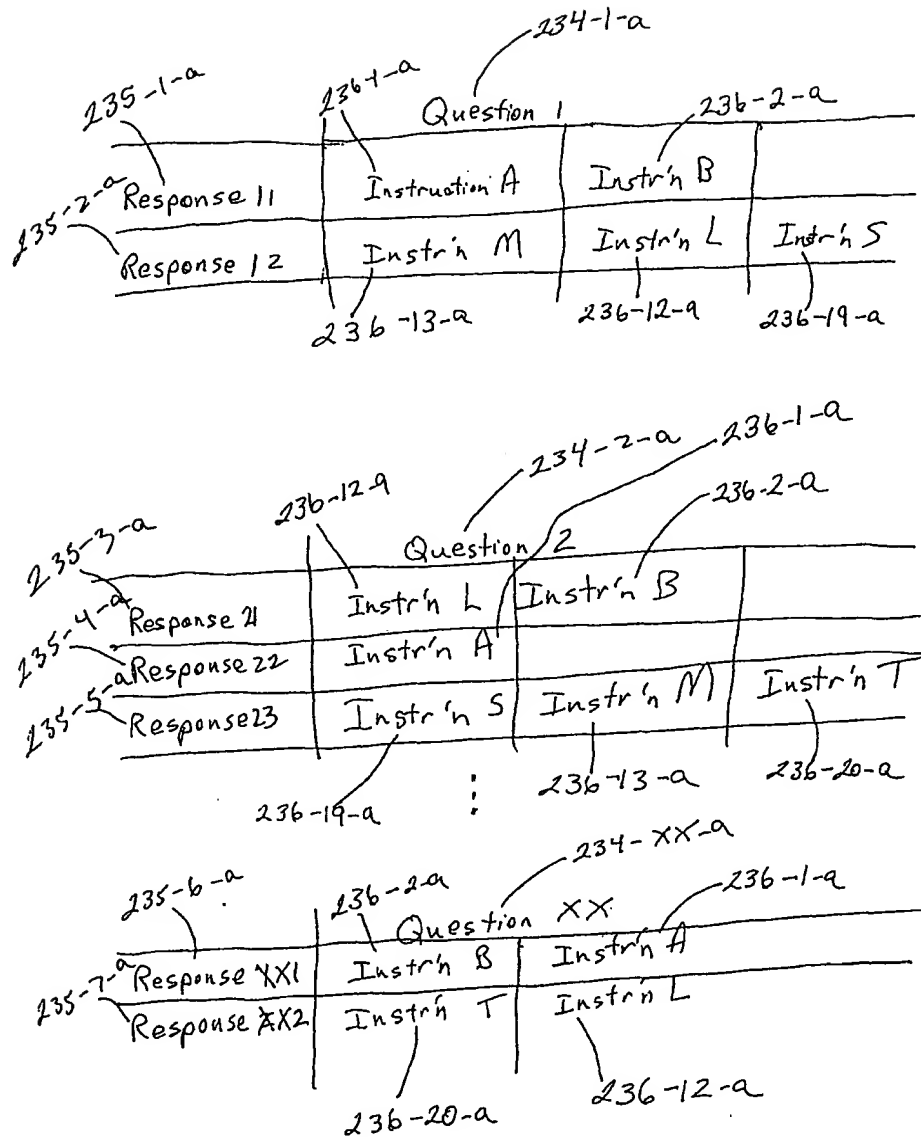 234-1-a
235-1-a 236-1-a Question 1 236-2-a
235-2-a Response 11 Instruction A Instr'n B
Response 12 Instr'n M Instr'n L Instr'n S
236-13-a 236-12-a 236-19-a
234-2-a 236-1-a
236-12-a 236-2-a
235-3-a Question 2
Response 21 Instr'n L Instr'n B
235-4-a Response 22 Instr'n A
235-5-a Response 23 Instr'n S Instr'n M Instr'n T
236-19-a 236-13-a 236-20-a
234-XX-a
235-6-a 236-2-a Question XX 236-1-a
Response XX1 Instr'n B Instr'n A
235-7-a Response XX2 Instr'n T Instr'n L
236-20-a 236-12-a